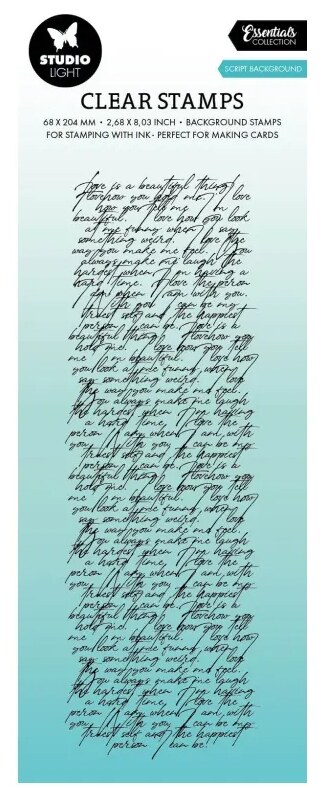 STUDIO
LIGHT
Essentials
COLLECTION
SCRIPT BACKGROUND
CLEAR STAMPS
68 X 204 MM • 2,68 X 8,03 INCH • BACKGROUND STAMPS
FOR STAMPING WITH INK - PERFECT FOR MAKING CARDS
Love is a beautiful thing!
I love how you hold me. I love
how you tell me I'm
beautiful. I love how you look
at me funny when I say
something weird. I love the
way you make me feel. You
always make me laugh the
hardest when I'm having a
hard time. I love the person
I am when I am with you.
With you I can be my
truest self and the happiest
person I can be. Love is a
beautiful thing! I love how you
hold me. I love how you tell
me I'm beautiful. I love how
you look at me funny when I
say something weird. I love
the way you make me feel.
You always make me laugh
the hardest when I'm having
a hard time. I love the
person I am when I am with
you. With you I can be my
truest self and the happiest
person I can be. Love is a
beautiful thing! I love how you
hold me. I love how you tell
me I'm beautiful. I love how
you look at me funny when I
say something weird. I love
the way you make me feel.
You always make me laugh
the hardest when I'm having
a hard time. I love the
person I am when I am with
you. With you I can be my
truest self and the happiest
person I can be. Love is a
beautiful thing! I love how you
hold me. I love how you tell
me I'm beautiful. I love how
you look at me funny when I
say something weird. I love
the way you make me feel.
You always make me laugh
the hardest when I'm having
a hard time. I love the
person I am when I am with
you. With you I can be my
truest self and the happiest
person I can be!